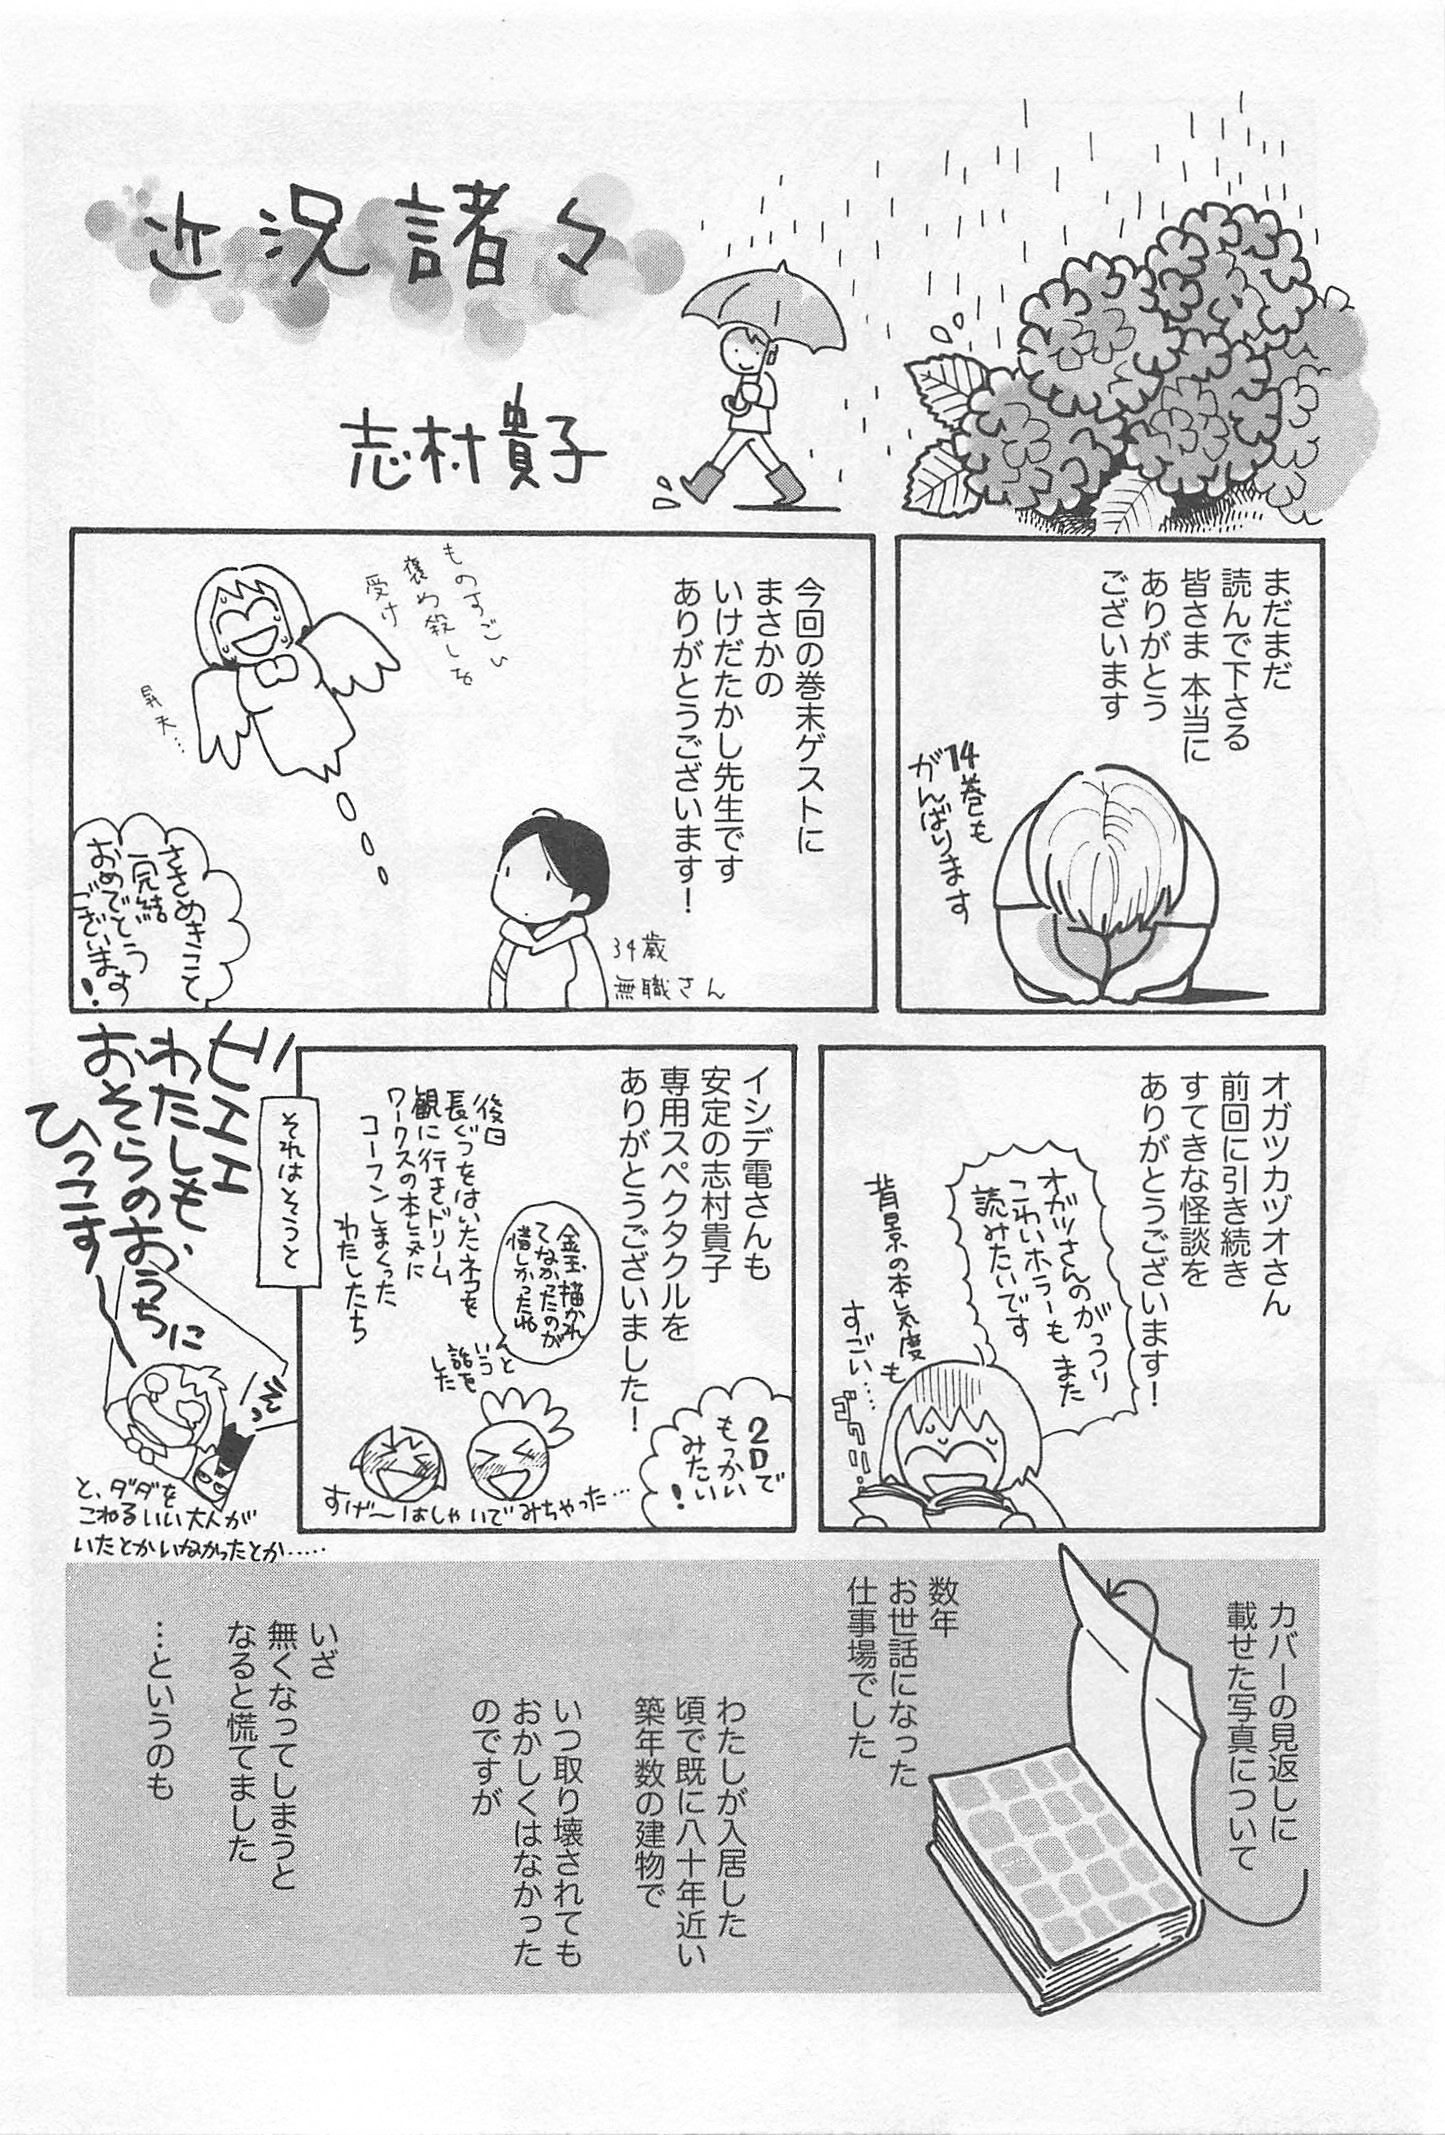 近況諸々
志村貴子
まだまだ
読んで下さる
皆さま 本当に
ありがとう
ございます
14巻も
がんばります
今回の巻末ゲストに
まさかの
いけだたかし先生です
ありがとうございます!
ものすごい
褒め殺しを
受け
昇天…
34歳
無職さん
ささめきこと
完結
おめでとう
ございます!
オガツカヅオさん
前回に引き続き
すてきな怪談を
ありがとうございます!
オガツさんのがっつり
こわいホラーもまた
読みたいです
背景の本気度も
すごい…
ゴクリ…
イシデ電さんも
安定の志村貴子
専用スペクタクルを
ありがとうございました!
2Dで
もっかい
みたい!
後日
長ぐつをはいたネコを
観に行きドリーム
ワークスの本気に
コーフンしまくった
わたしたち
金玉描かれ
てなかったのが
惜しかったね
と
いう
話を
した
すげ〜はしゃいでみちゃった…
それはそうと
ビエエエ
わたしも
おそらのおうちに
ひっこす〜
と、ダダを
こねるいい大人が
いたとかいなかったとか……
カバーの見返しに
載せた写真について
数年
お世話になった
仕事場でした
わたしが入居した
頃で既に八十年近い
築年数の建物で
いつ取り壊されても
おかしくはなかった
のですが
いざ
無くなってしまうと
なると慌てました
…というのも